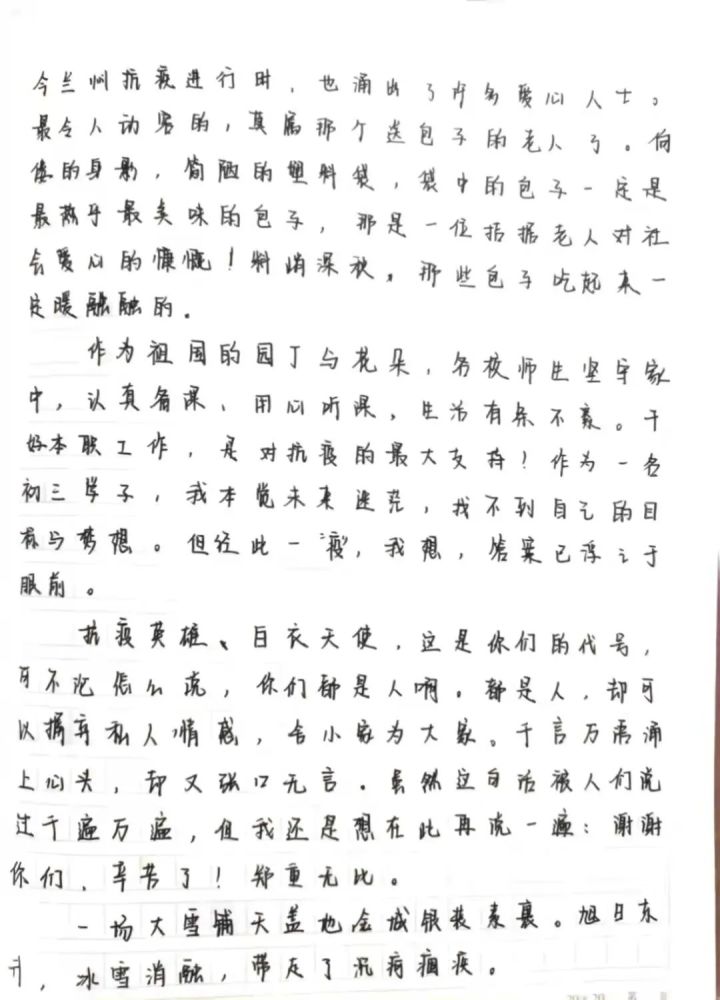 今兰州抗疫进行时，也涌出了许多爱心人士。
最令人动容的，莫属那个送包子的老人了。佝
偻的身影，简陋的塑料袋，袋中的包子一定是
最热乎最美味的包子，那是一位拮据老人对社
会爱心的慷慨！料峭深秋，那些包子吃起来一
定暖融融的。
作为祖国的园丁与花朵，各校师生坚守家
中，认真备课、用心听课，生活有条不紊。干
好本职工作，是对抗疫的最大支持！作为一名
初三学子，我本觉未来迷茫，找不到自己的目
标与梦想。但经此一“疫”，我想，答案已浮之于
眼前。
抗疫英雄、白衣天使，这是你们的代号，
可不论怎么说，你们都是人啊。都是人，却可
以摒弃私人情感，舍小家为大家。千言万语涌
上心头，却又张口无言。虽然这句话被人们说
过千遍万遍，但我还是想在此再说一遍：谢谢
你们，辛苦了！郑重无比。
一场大雪铺天盖地金城银装素裹。旭日东
升，冰雪消融，带走了沉疴痼疾。
20×20 第 页